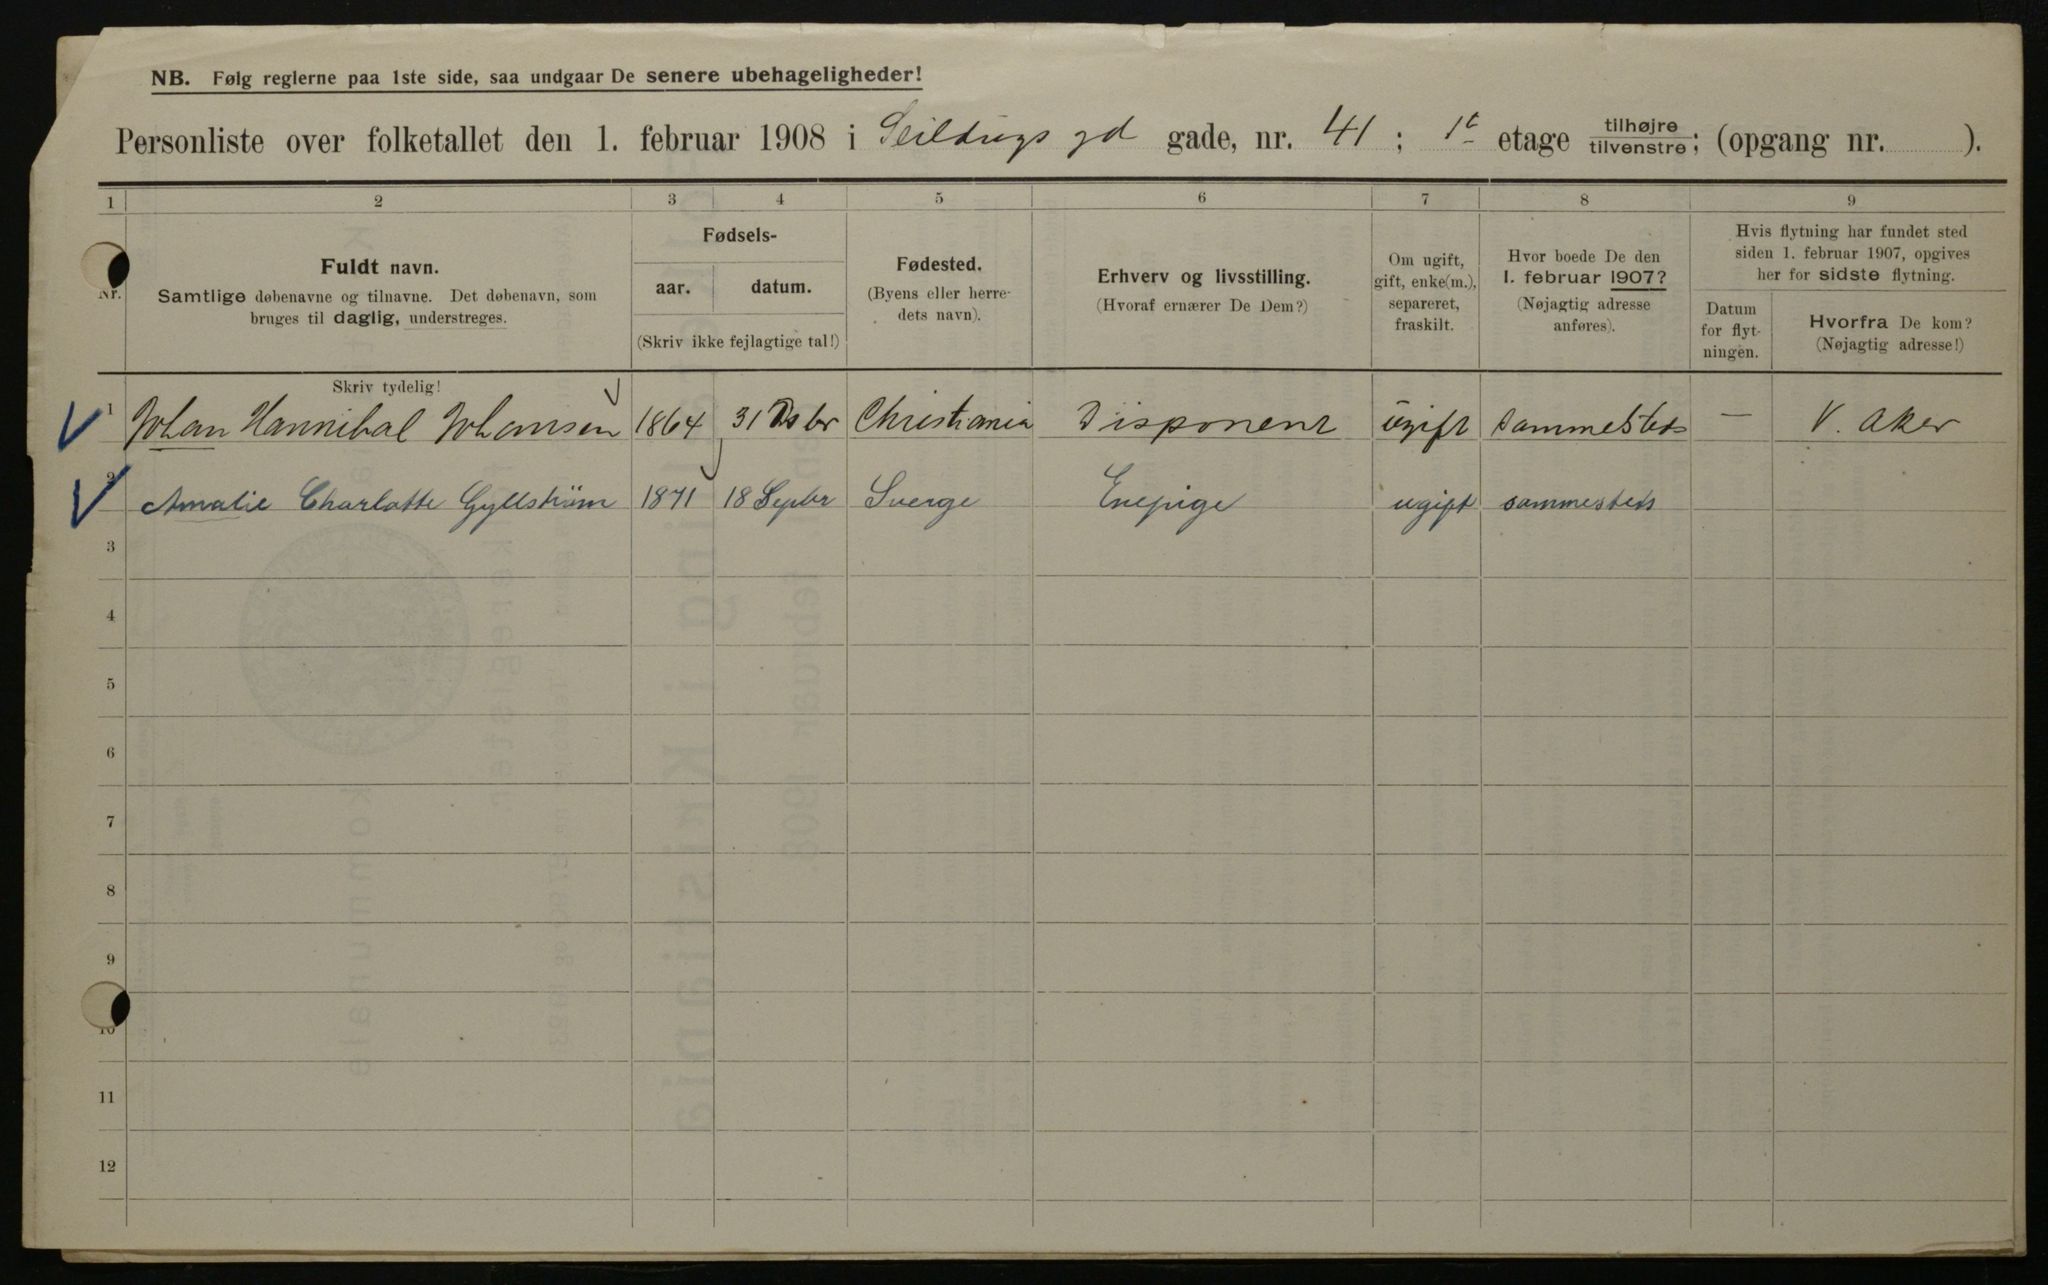 NB. Følg reglerne paa 1ste side, saa undgaar De senere ubehageligheder!
Personliste over folketallet den 1. februar 1908 i Seildugs gd gade, nr. 41; 1t etage tilhøjre tilvenstre; (opgang nr. ).
1 2 3 4 5 6 7 8 9
Nr.
Fuldt navn.
Samtlige døbenavne og tilnavne. Det døbenavn, som
bruges til daglig, understreges.
Skriv tydelig!
Fødsels-
aar. datum.
(Skriv ikke fejlagtige tal!)
Fødested.
(Byens eller herre-
dets navn).
Erhverv og livsstilling.
(Hvoraf ernærer De Dem?)
Om ugift,
gift, enke(m.),
separeret,
fraskilt.
Hvor boede De den
1. februar 1907?
(Nøjagtig adresse
anføres).
Hvis flytning har fundet sted
siden 1. februar 1907, opgives
her for sidste flytning.
Datum
for flyt-
ningen.
Hvorfra De kom?
(Nøjagtig adresse!)
1 Johan Hannibal Johansen 1864 31 Dsbr Christiania Disponent ugift sammesteds — V. Aker
2 Amalie Charlotte Gyllström 1871 18 Septbr Sverge Enepige ugift sammesteds
3
4
5
6
7
8
9
10
11
12